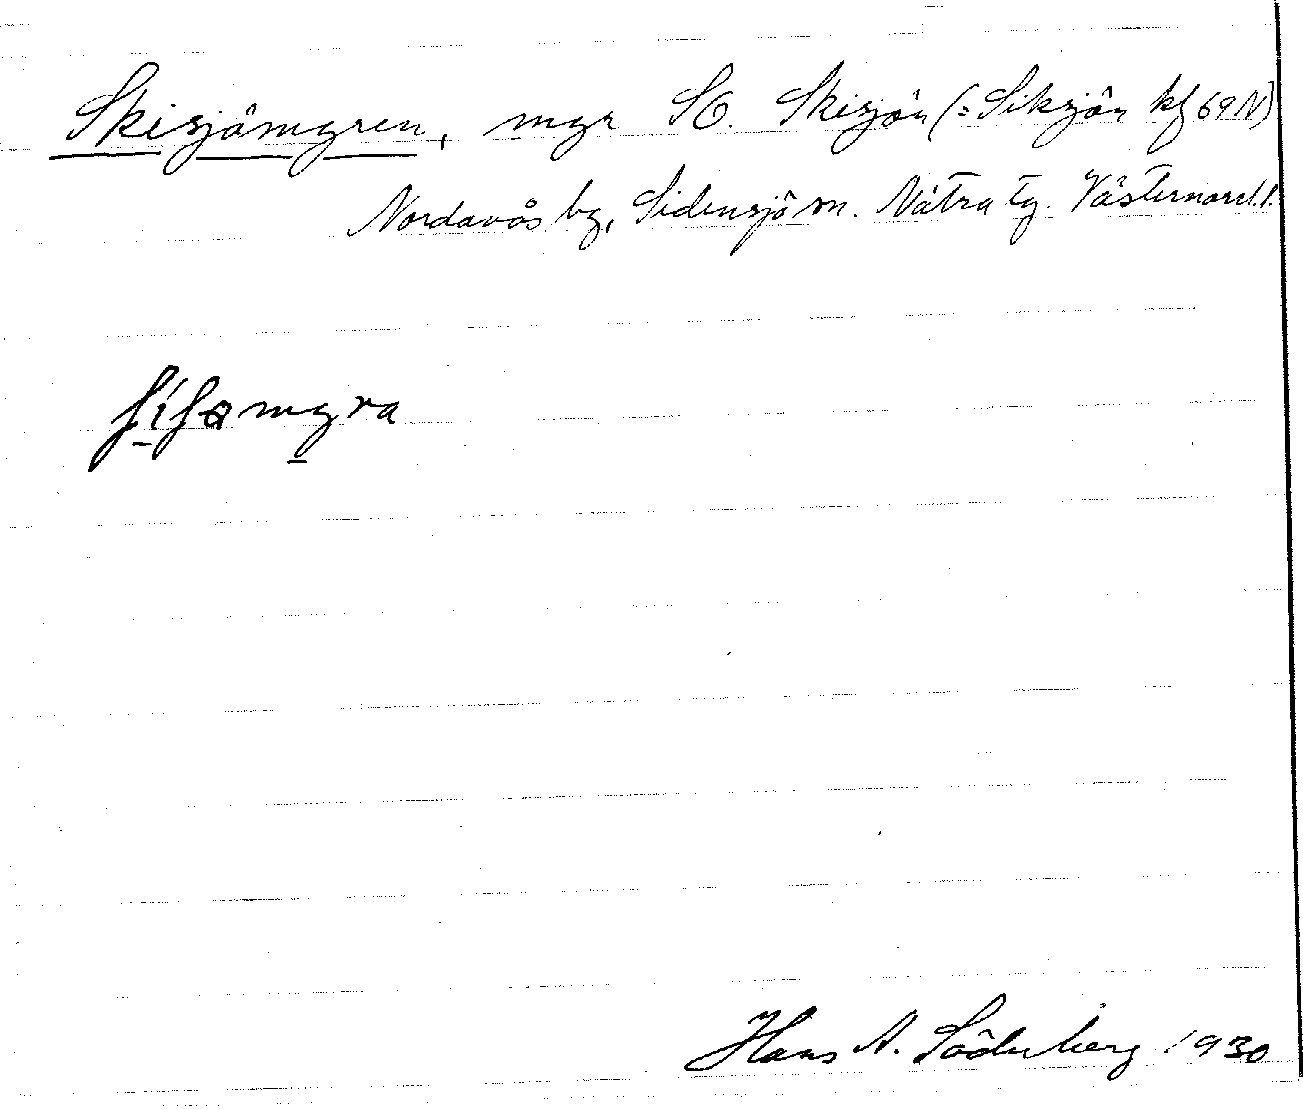 Skisjömyren, myr SO. Skisjön (= Siksjön kf 69 N)
Nordanås by, Sidensjö sn. Nätra tg. Västernorrl. l.
ʃiʃømyra
Hans A. Söderberg 1930